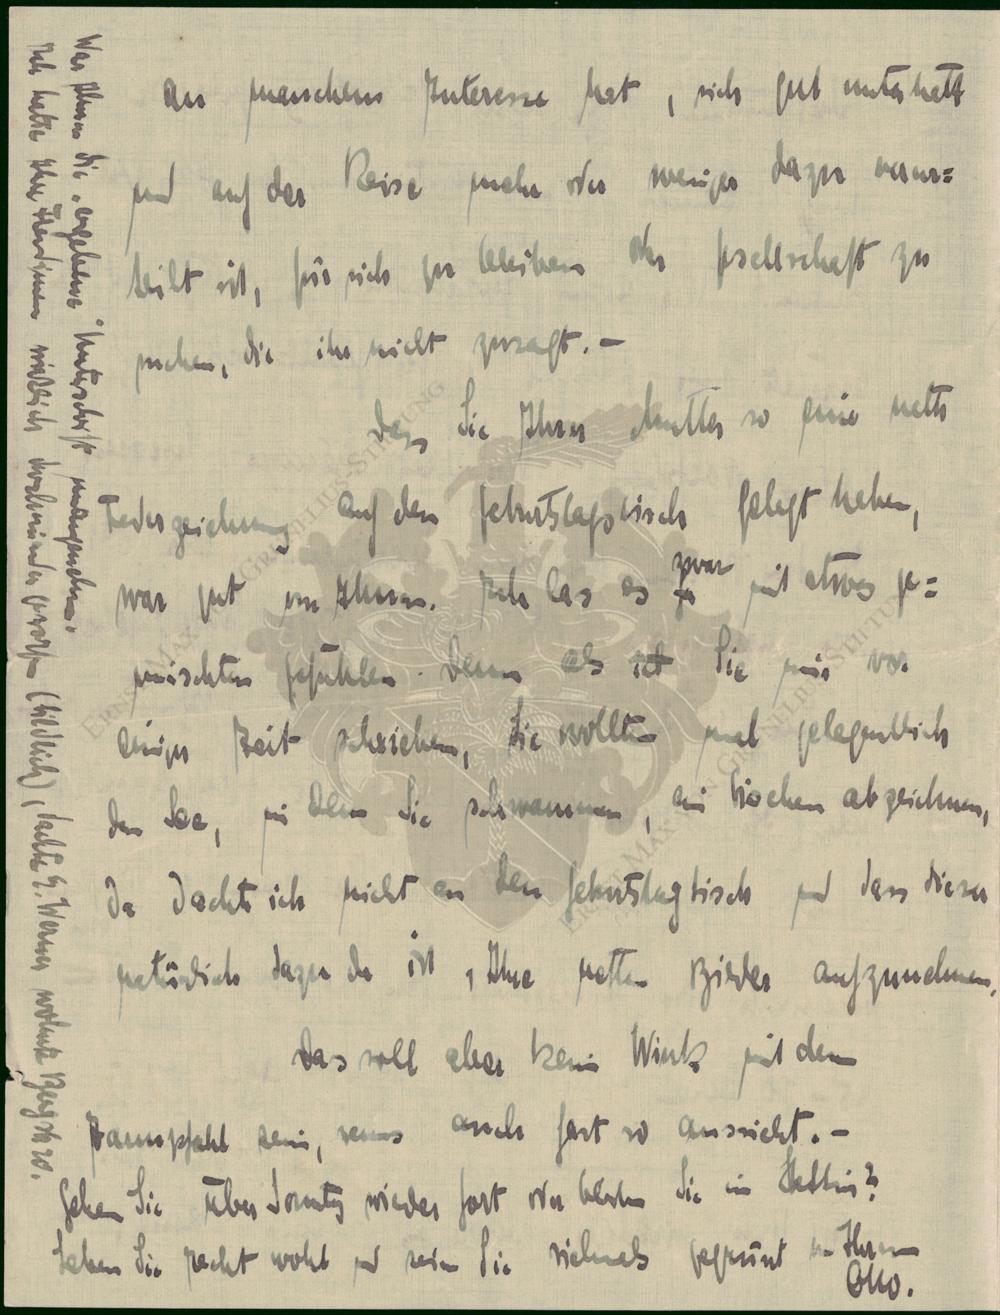 an manchem Interesse hat, sich gut unterhält
und auf der Reise mehr oder weniger dazu verur=
teilt ist, für sich zu bleiben oder Gesellschaft zu
suchen, die ihr nicht zusagt. –
Dass Sie Ihrer Mutter so eine nette
Federzeichnung auf den Geburtstagstisch gelegt haben,
war gut von Ihnen. Ich las es zwar mit etwas ge=
mischten Gefühlen. Denn als Sie mir vor
einiger Zeit schrieben, Sie wollten mal gelegentlich
den See, in dem Sie schwammen, ein bischen abzeichnen,
da dachte ich nicht an den Geburtstagtisch und dass dieser
natürlich dazu da ist, Ihre netten Bilder aufzunehmen.
Das soll aber kein Wink mit dem
Zaunpfahl sein, wenns auch fast so aussieht. –
Gehen Sie über Sonntag wieder fort oder bleiben Sie in Stettin?
Leben Sie recht wohl und seien Sie vielmals gegrüsst von Ihrem
Otto.
War Ihnen die "ergebene" Unterschrift unangenehm.
Ich hatte wirklich durcheinander geworfen (bildlich), dachte G. Werner wohnt Bergstr 20.
ERNST-MAX VON GRUNELIUS-STIFTUNG
ERNST-MAX VON GRUNELIUS-STIFTUNG